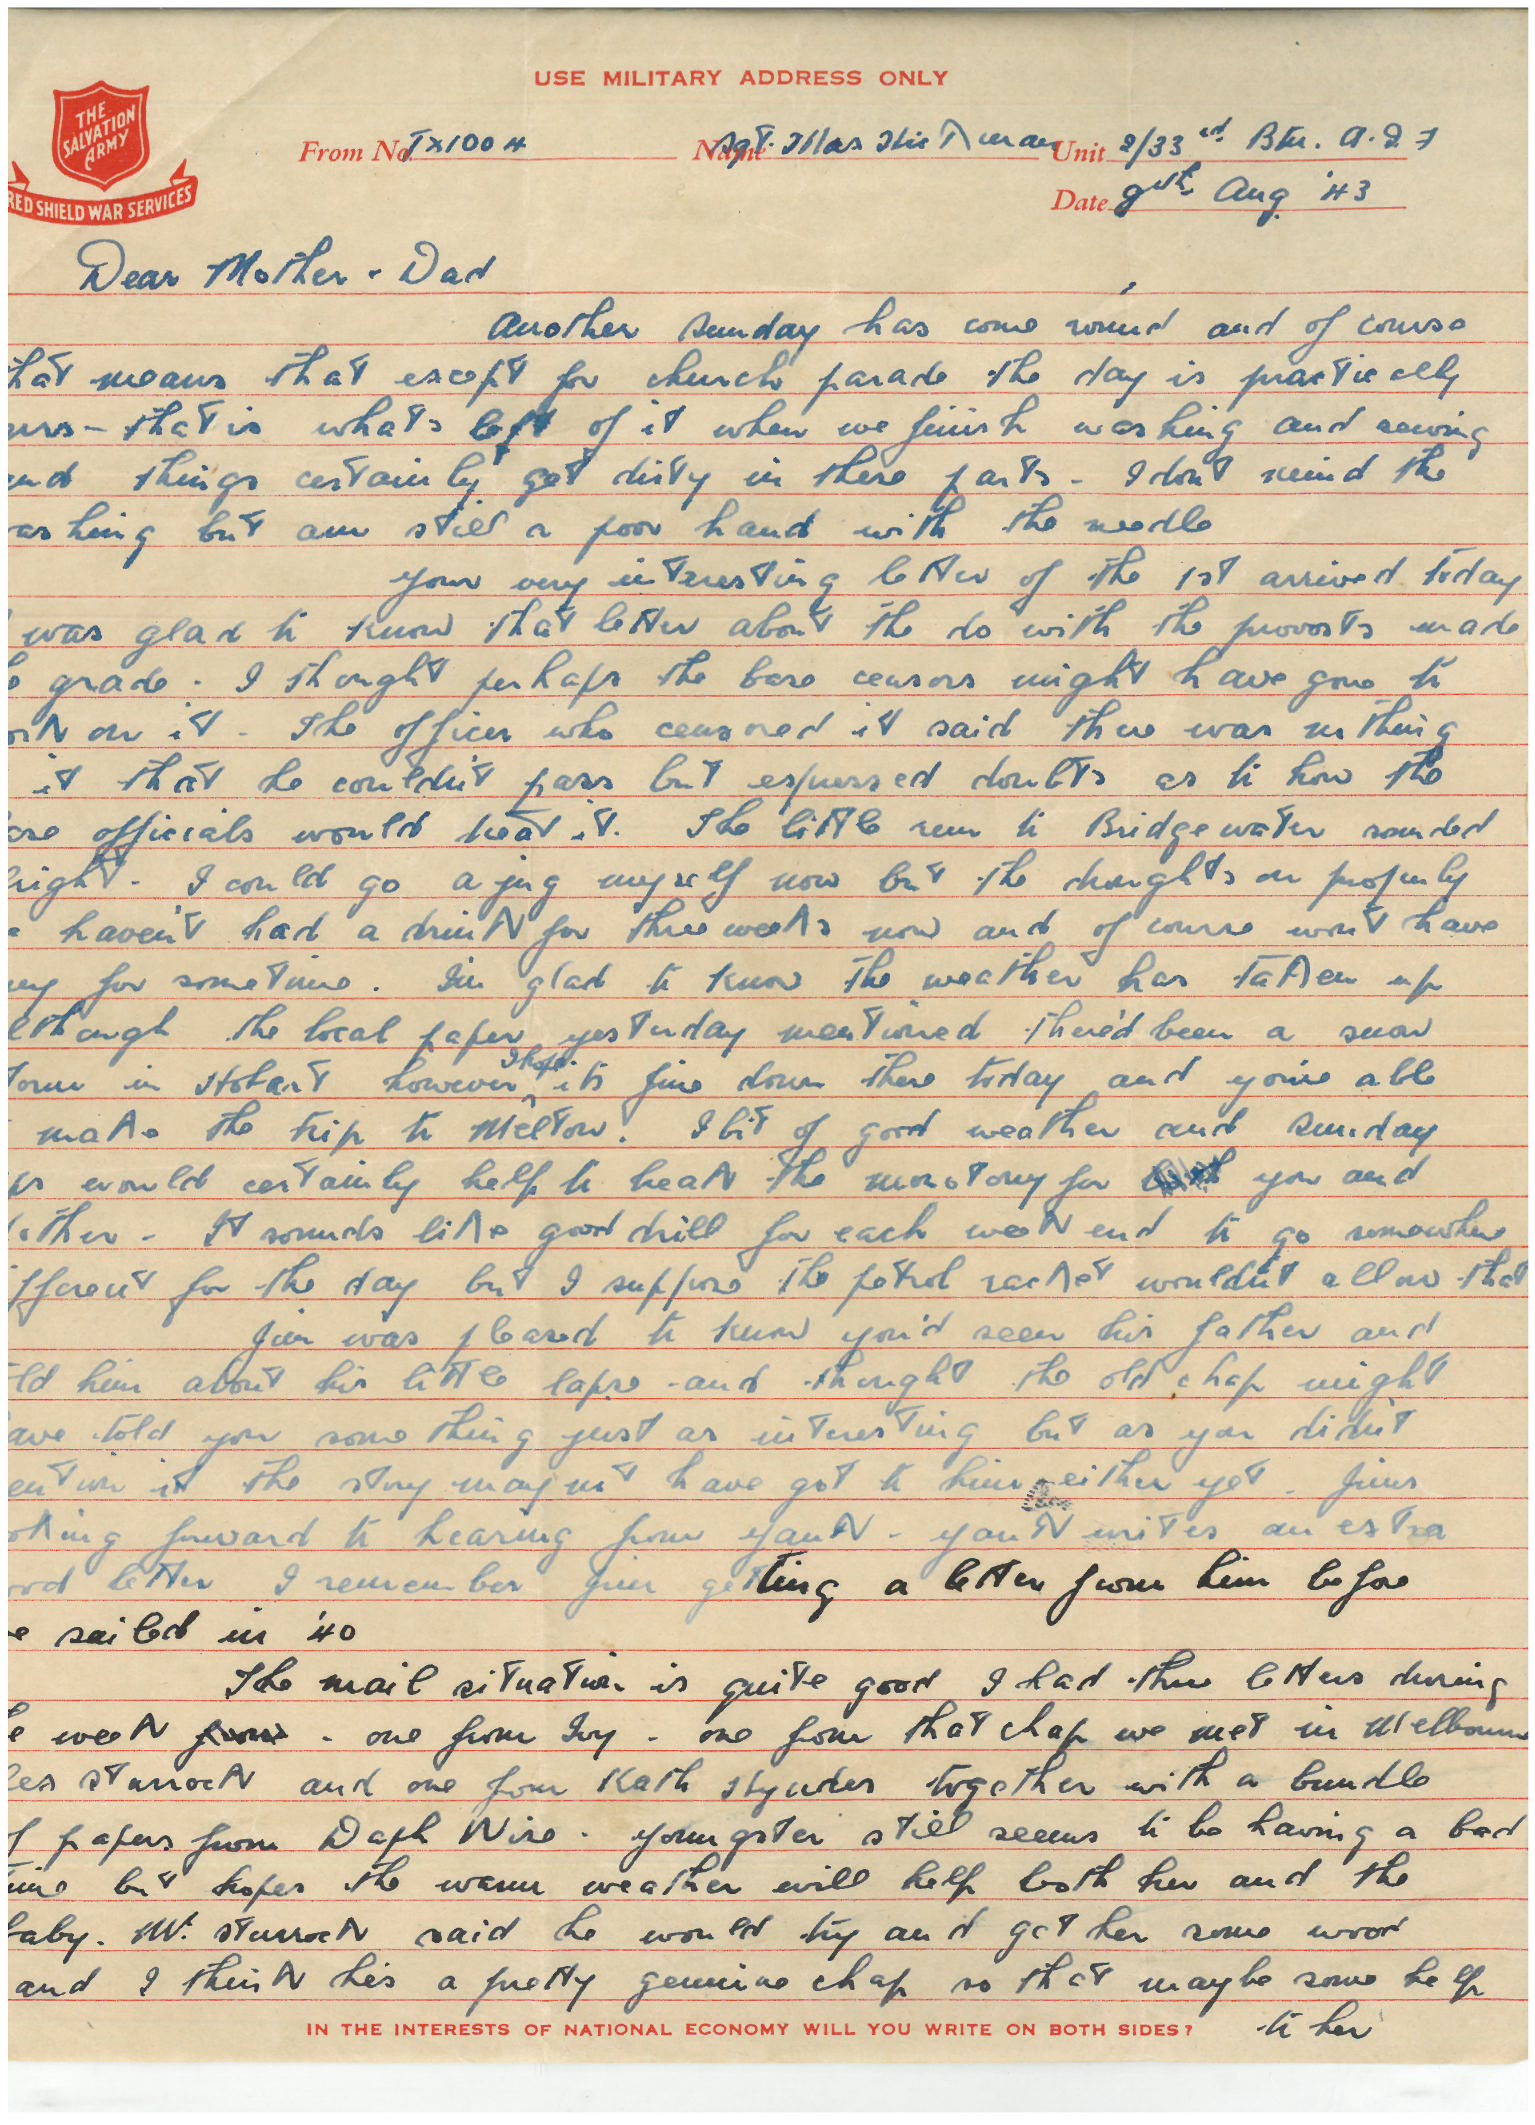 USE MILITARY ADDRESS ONLY
THE
SALVATION
ARMY
RED SHIELD WAR SERVICES
From No TX1004 Name Sgt. Unit 2/33rd Btn. A.I.F
Date 9th Aug '43
Dear Mother & Dad
Another Sunday has come round and of course
hat means that except for church parade the day is practically
urs - that is whats left of it when we finish washing and sewing
and things certainly get dirty in these parts - I dont mind the
ashing but am still a poor hand with the needle
Your very interesting letter of the 1st arrived today
was glad to know that letter about the do with the provosts made
e grade. I thought perhaps the base censors might have gone to
on it. The officer who censored it said there was nothing
it that he couldn't pass but expressed doubts as to how the
ase officials would treat it. The little run to Bridgewater sounded
right. I could go a jug myself now but the droughts on properly
haven't had a drink for three weeks now and of course won't have
ny for sometime. I'm glad to know the weather has taken up
lthough the local paper yesterday mentioned there'd been a snow
torm in Hobart however I hope its fine down there today and you're able
make the trip to Melton. A bit of good weather and Sunday
ps would certainly help to break the monotony for you and
other - It sounds like good drill for each weekend to go somewhere
ifferent for the day but I suppose the petrol racket wouldn't allow that
Jim was pleased to know you'd seen his father and
old him about his little lapse and thought the old chap might
ave told you something just as interesting but as you didn't
ention it the story mayn't have got to him either yet. Jims
oking forward to hearing from Yank - Yank writes an extra
ood letter I remember Jim getting a letter from him before
e sailed in '40
The mail situation is quite good I had three letters during
e week - one from Ivy - one from that chap we met in Melbourne
Les Sturrock and one from Kath together with a bundle
f papers from Daph youngster still seems to be having a bad
time but hopes the warm weather will help both her and the
baby. Mr. Sturrock said he would try and get her some wood
and I think he's a pretty genuine chap so that maybe some help
to her
IN THE INTERESTS OF NATIONAL ECONOMY WILL YOU WRITE ON BOTH SIDES?